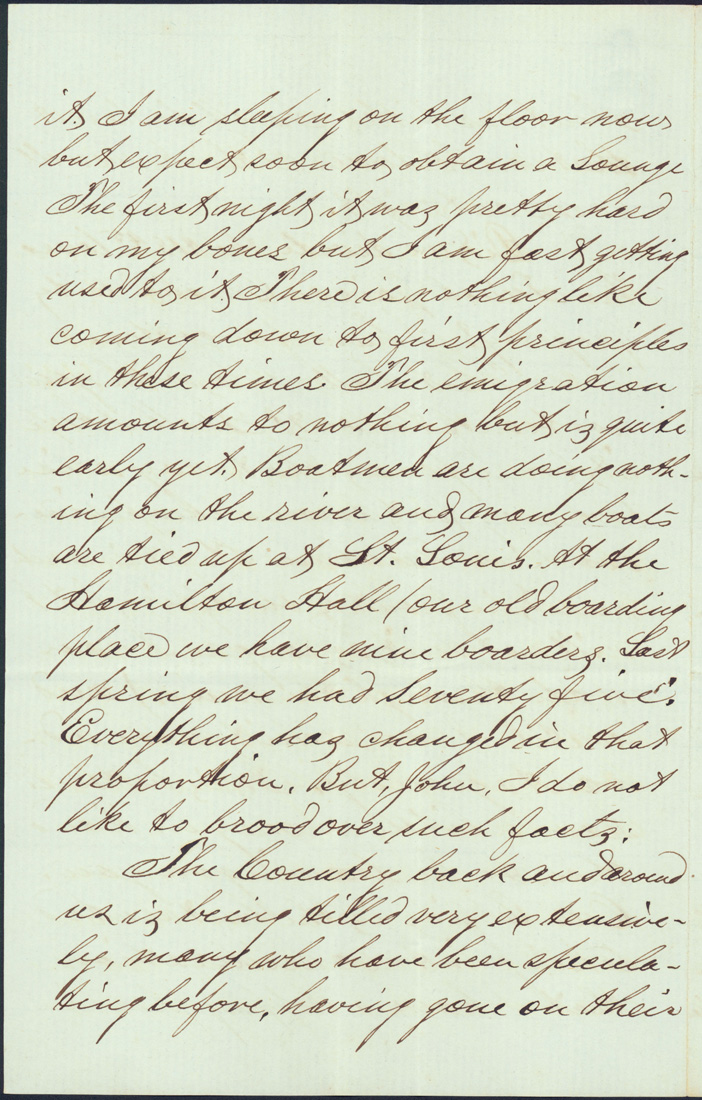 it. I am sleeping on the floor now
but expect soon to obtain a Lounge
The first night it was pretty hard
on my bones but I am fast getting
used to it. There is nothing like
coming down to first principles
in these times. The emigration
amounts to nothing but is quite
early yet. Boatmen are doing noth-
ing on the river and many boats
are tied up at St. Louis. At the
Hamilton Hall (our old boarding
place we have nine boarders. Last
spring we had Seventy five.
Everything has changed in that
proportion. But, John, I do not
like to brood over such facts:
The Country back and around
us is being tilled very extensive-
ly, many who have been specula-
ting before, having gone on their